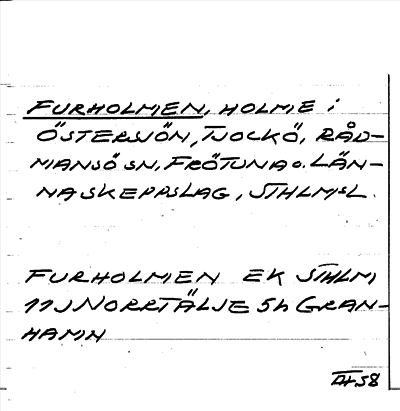 FURHOLMEN, HOLME i
ÖSTERSJÖN, TJOCKÖ, RÅD-
MANSÖ SN, FRÖTUNA o. LÄN-
NA SKEPPSLAG, STHLMSL.
FURHOLMEN EK STHLM
11J NORRTÄLJE 5h GRAN-
HAMN